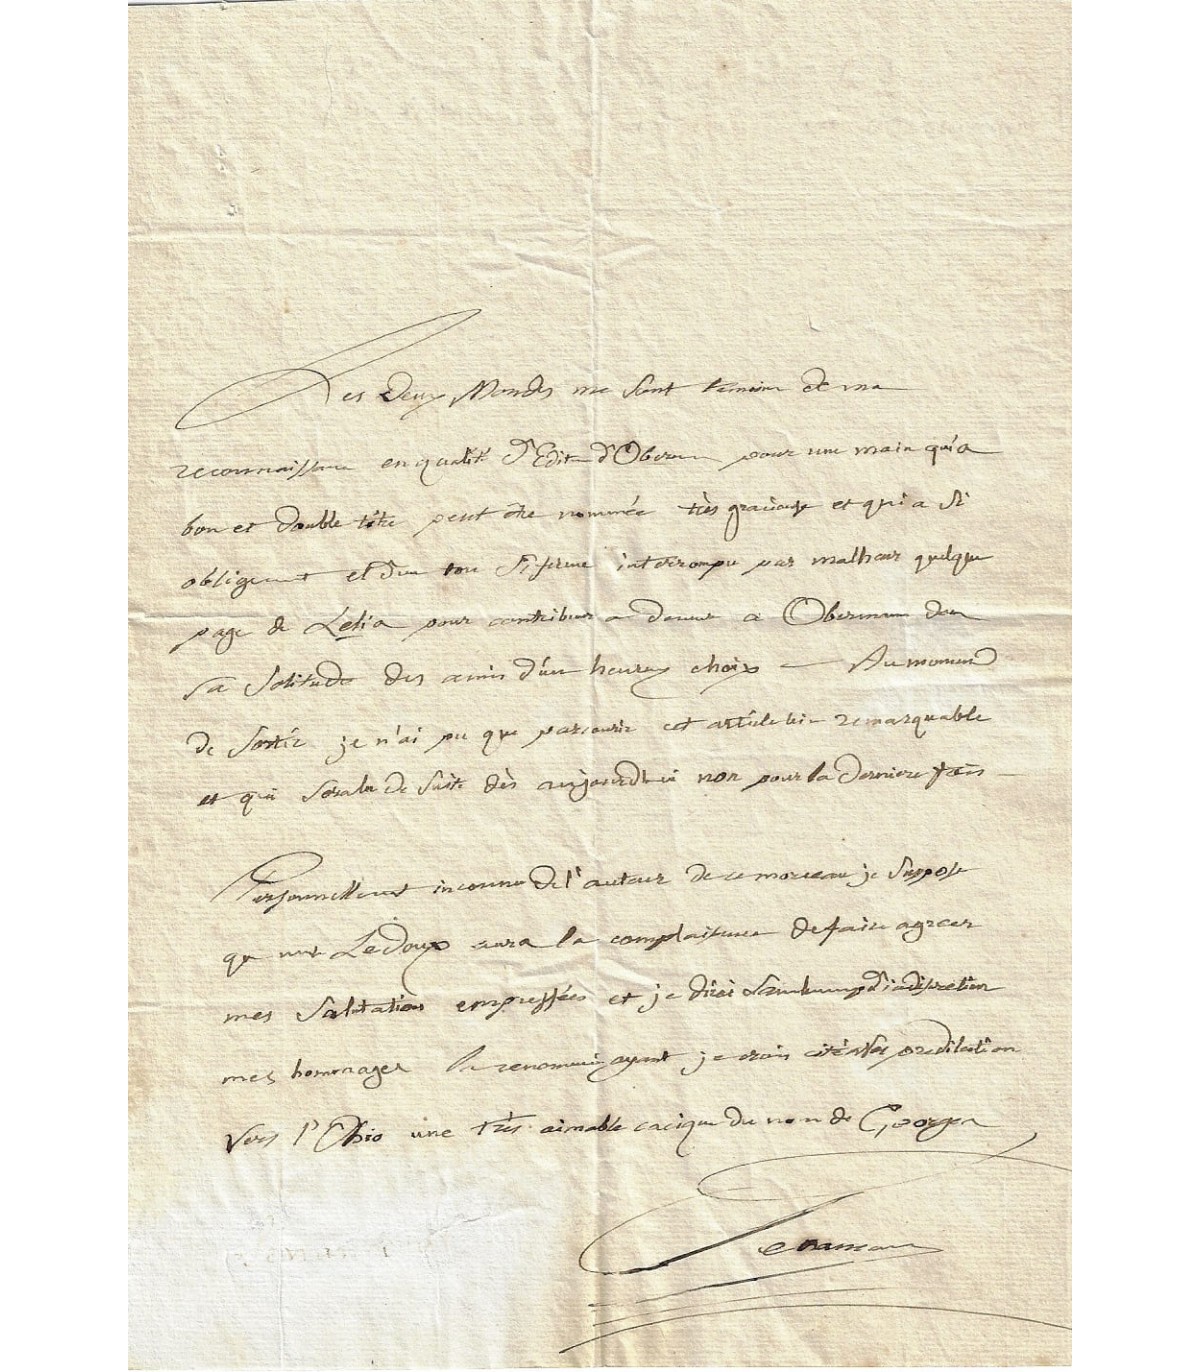 Les deux Mondes me sont témoin de ma
reconnaissance en qualité d'Edit d'Oberman pour une main qui a
bon et double titre peut être nommée très gracieuse et qui a si
obligeament et d'un ton si ferme interrompu par malheur quelque
page de Lelia pour contribuer a donner a Oberman dan
sa solitude des amis d'un heureux choix — Au moment
de sortir je n'ai pu que parcourir cet article bien remarquable
et qui sera lu de suite dès aujourdhui non pour la derniere fois —
Personnellement inconnu de l'auteur de ce morceau je suppose
que Ledoux aura la complaisance de faire agreer
mes salutations empressées et je dirai d'indiscretion
mes hommages la renommée ayant je crois cité predilection
vers l'Ohio une très aimable cacique du nom de George
Senancour